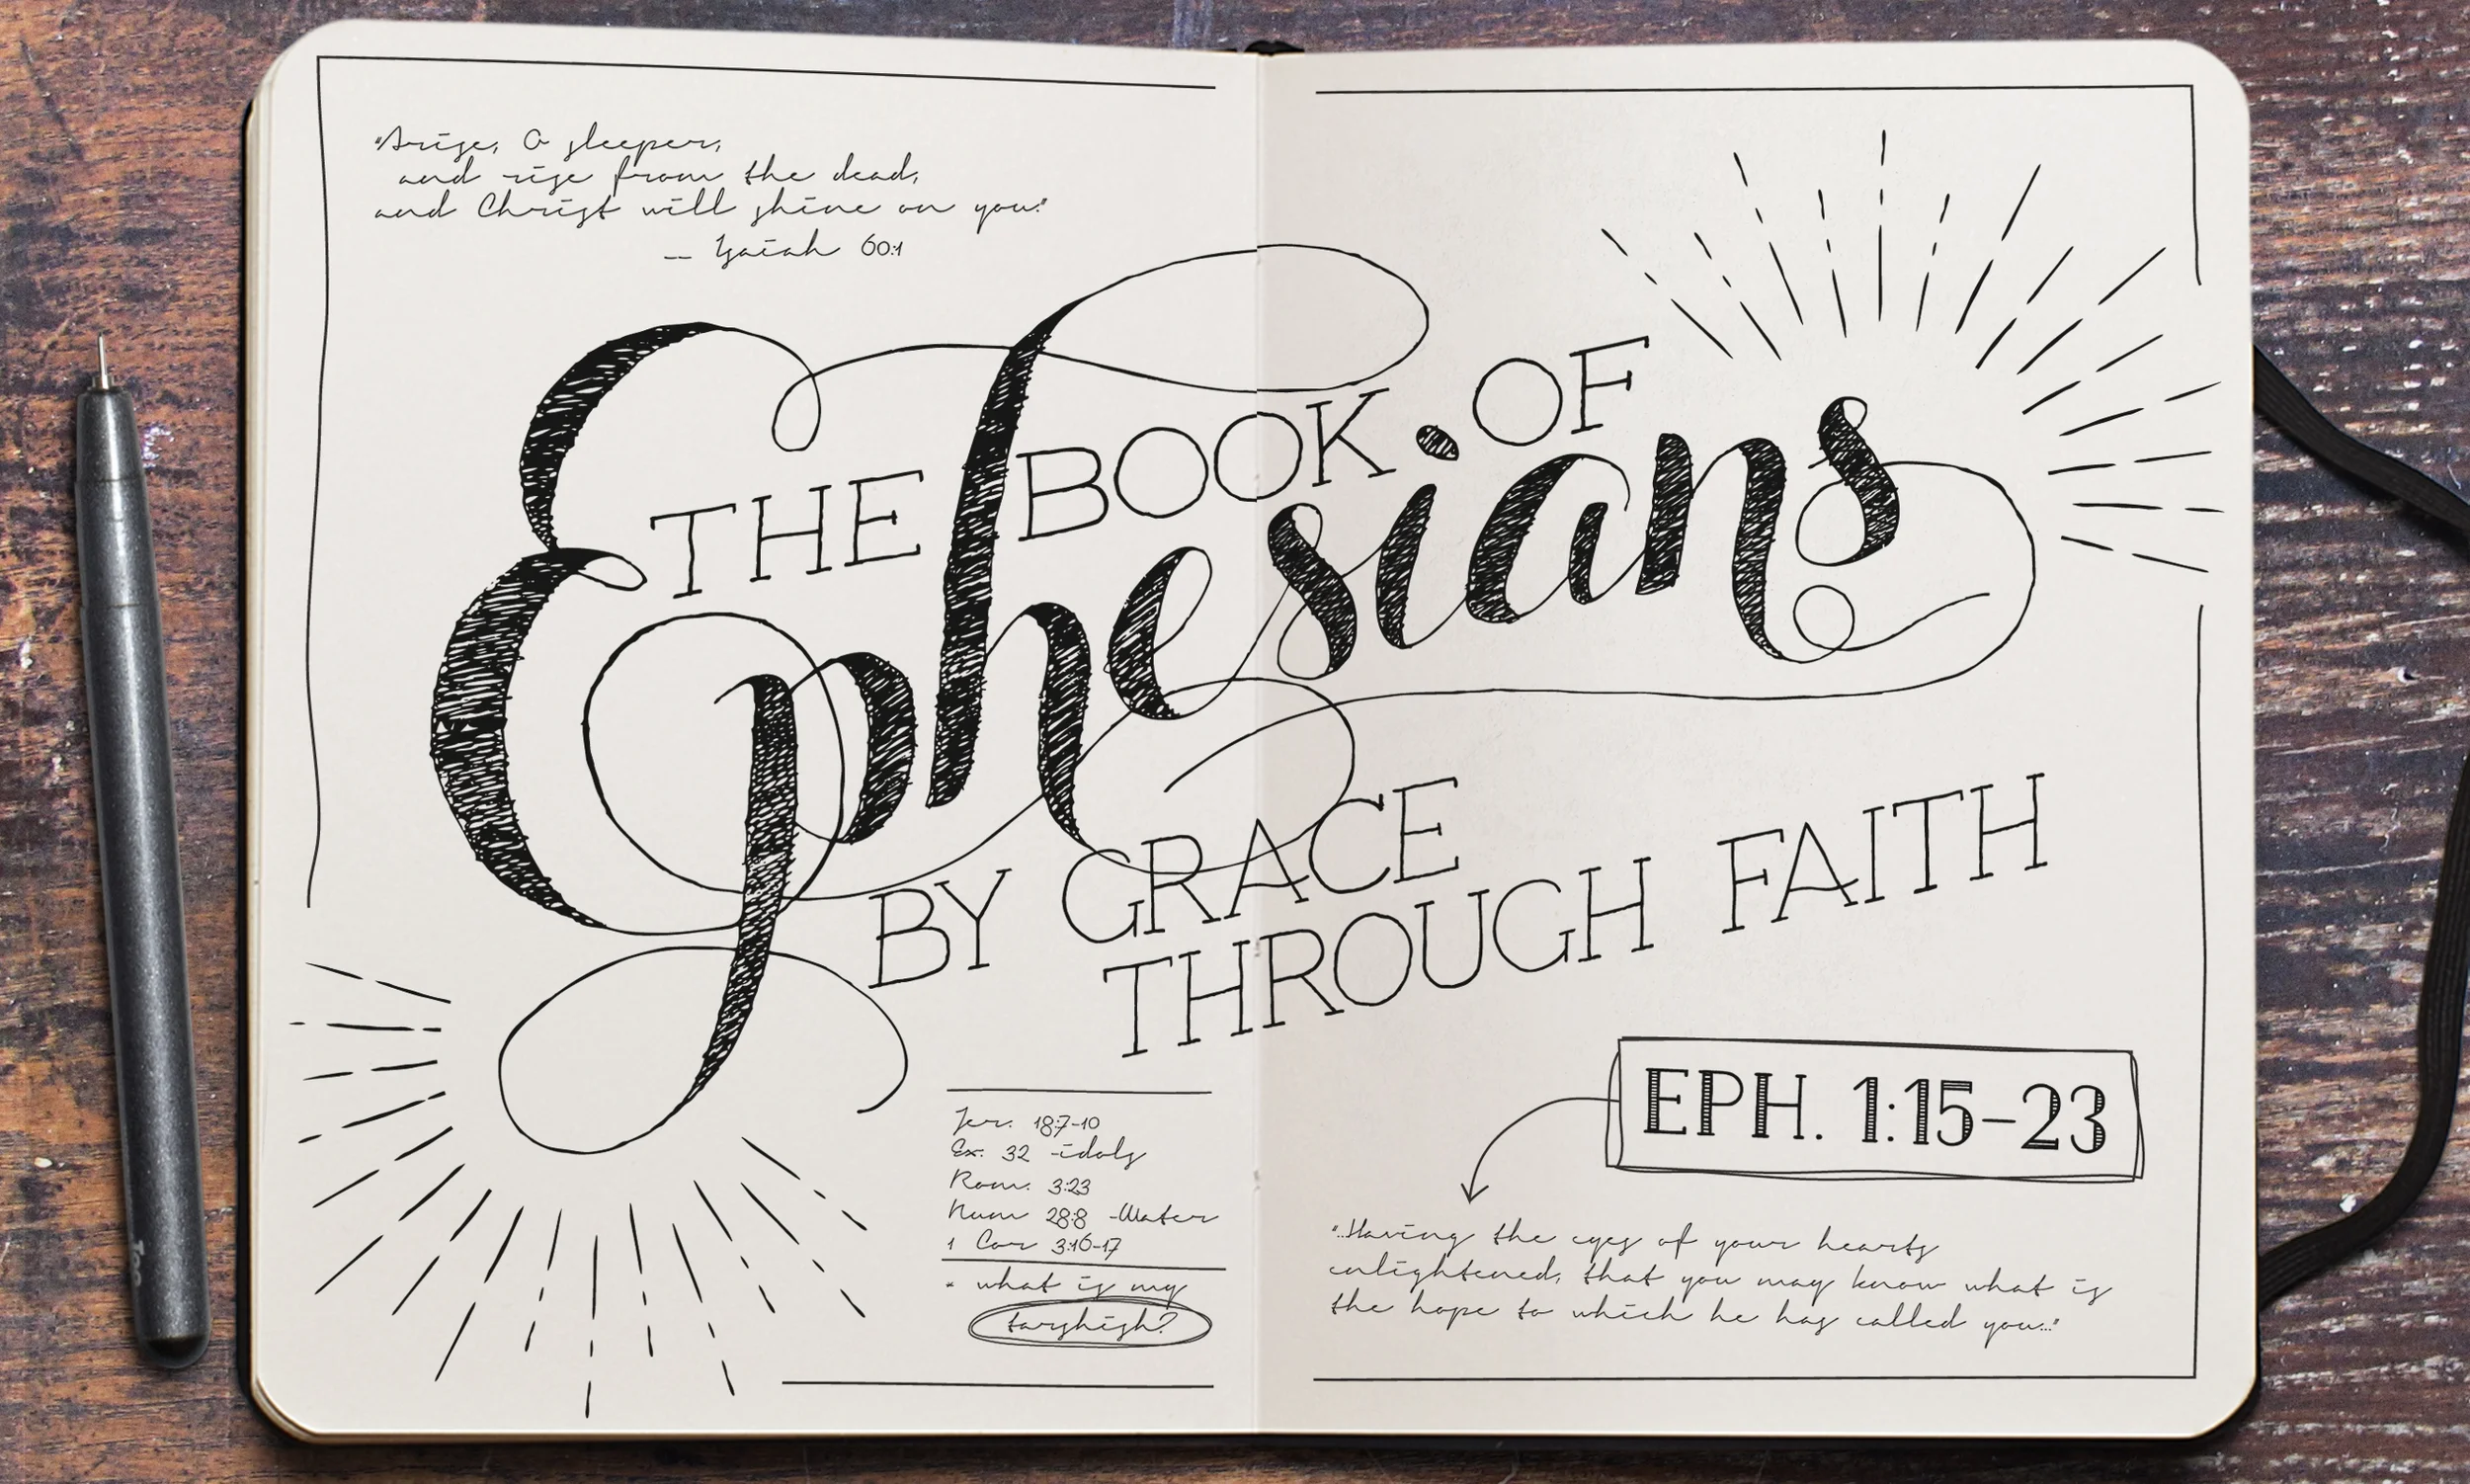 "Arise, O sleeper,
and rise from the dead,
and Christ will shine on you."
-- Isaiah 60:1
THE BOOK OF
Ephesians
BY GRACE
THROUGH FAITH
Jer. 18:7-10
Ex. 32 -idols
Rom. 3:23
Num 28:8 -Water
1 Cor 3:16-17
- what is my
tarshish?
EPH. 1:15-23
"...Having the eyes of your hearts
enlightened, that you may know what is
the hope to which he has called you..."